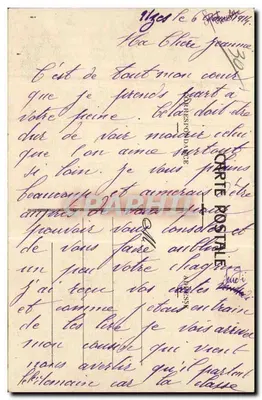 Uzes le 6
Ma Chère Jeanne
C'est de tout mon cœur
que je prends part a
votre peine. Cela doit être
dur de voir mourir celui
que l'on aime surtout
si loin. Je vous plains
beaucoup et aimerais être
auprès de vous pour
pouvoir vous consoler
et de vous faire oublier
un peu votre chagrin
j'ai reçu vos cartes
et comme j'étais en train
de les lire je vois arriver
mon cousin qui vient
nous avertir qu'il partent
car la classe
CORRESPONDANCE
CARTE POSTALE
ADRESSE